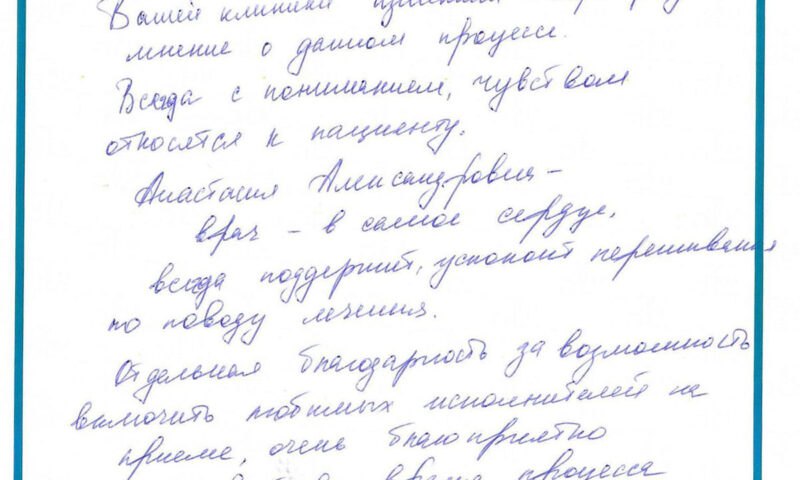 Вашей клиники
мнение о данном процессе.
Всегда с пониманием, чувством
относятся к пациенту.
Анастасия Александровна –
врач – в самое сердце,
всегда поддержит, успокоит переживания
по поводу лечения.
Отдельная благодарность за возможность
включить любимых исполнителей на
приеме, очень благоприятно
процесса